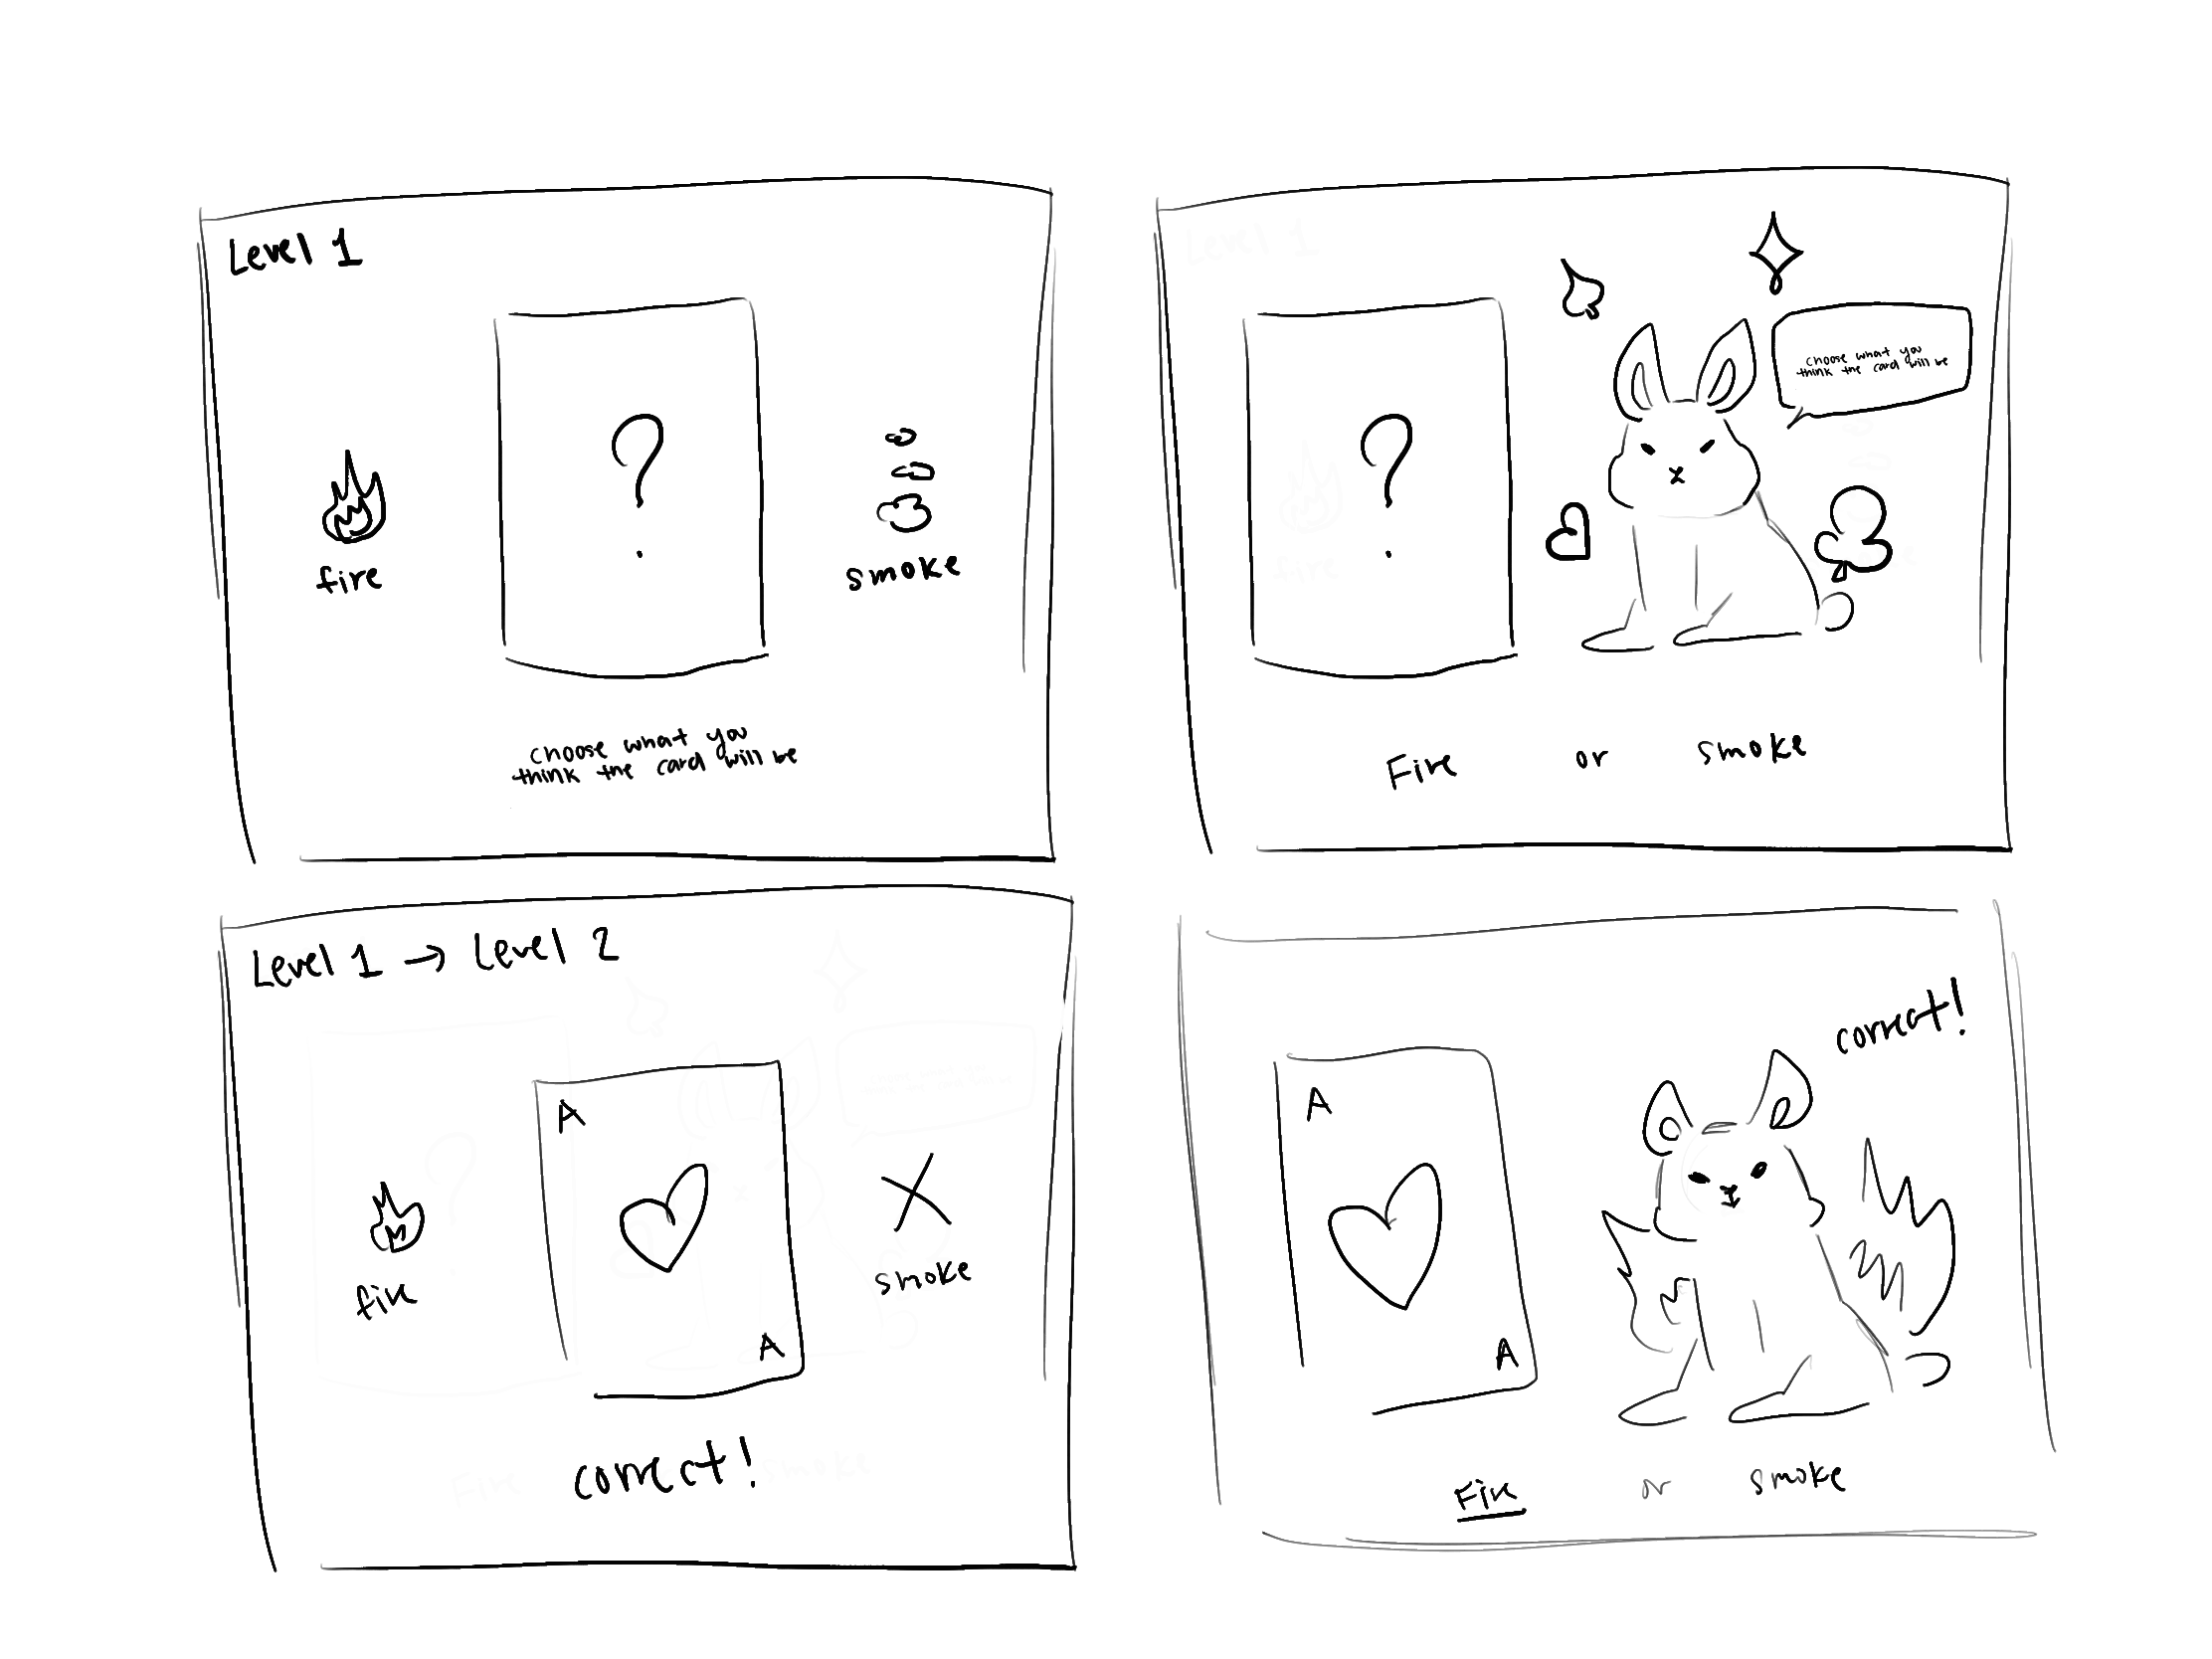 Level 1
?
fire
smoke
choose what you
think the card will be
Level 1
?
choose what you
think the card will be
fire
Fire or smoke
Level 1 → Level 2
A
fire
smoke
A
correct!
Fire
smoke
correct!
A
A
Fire or smoke